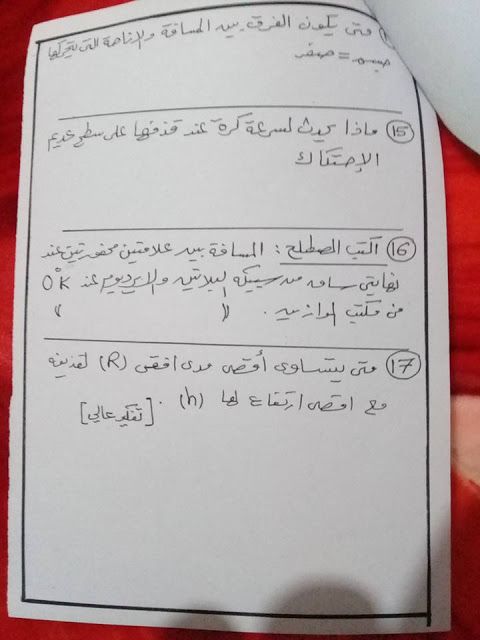 متى يكون الفرق بين المسافة والإزاحة التى يتحركها
جسم = صفر
15 ماذا يحدث لسرعة كرة عند قذفها على سطح عديم
الإحتكاك
16 أكتب المصطلح : المسافة بين علامتين محفورتين عند
نهايتى ساق من سبيكة البلاتين والايريديوم عند 0°K
فى مكتب الموازين . ( )
17 متى يتساوى أقصى مدى افقى (R) لقذيفة
مع اقصى ارتفاع لها (h) . [تفكير عالى]